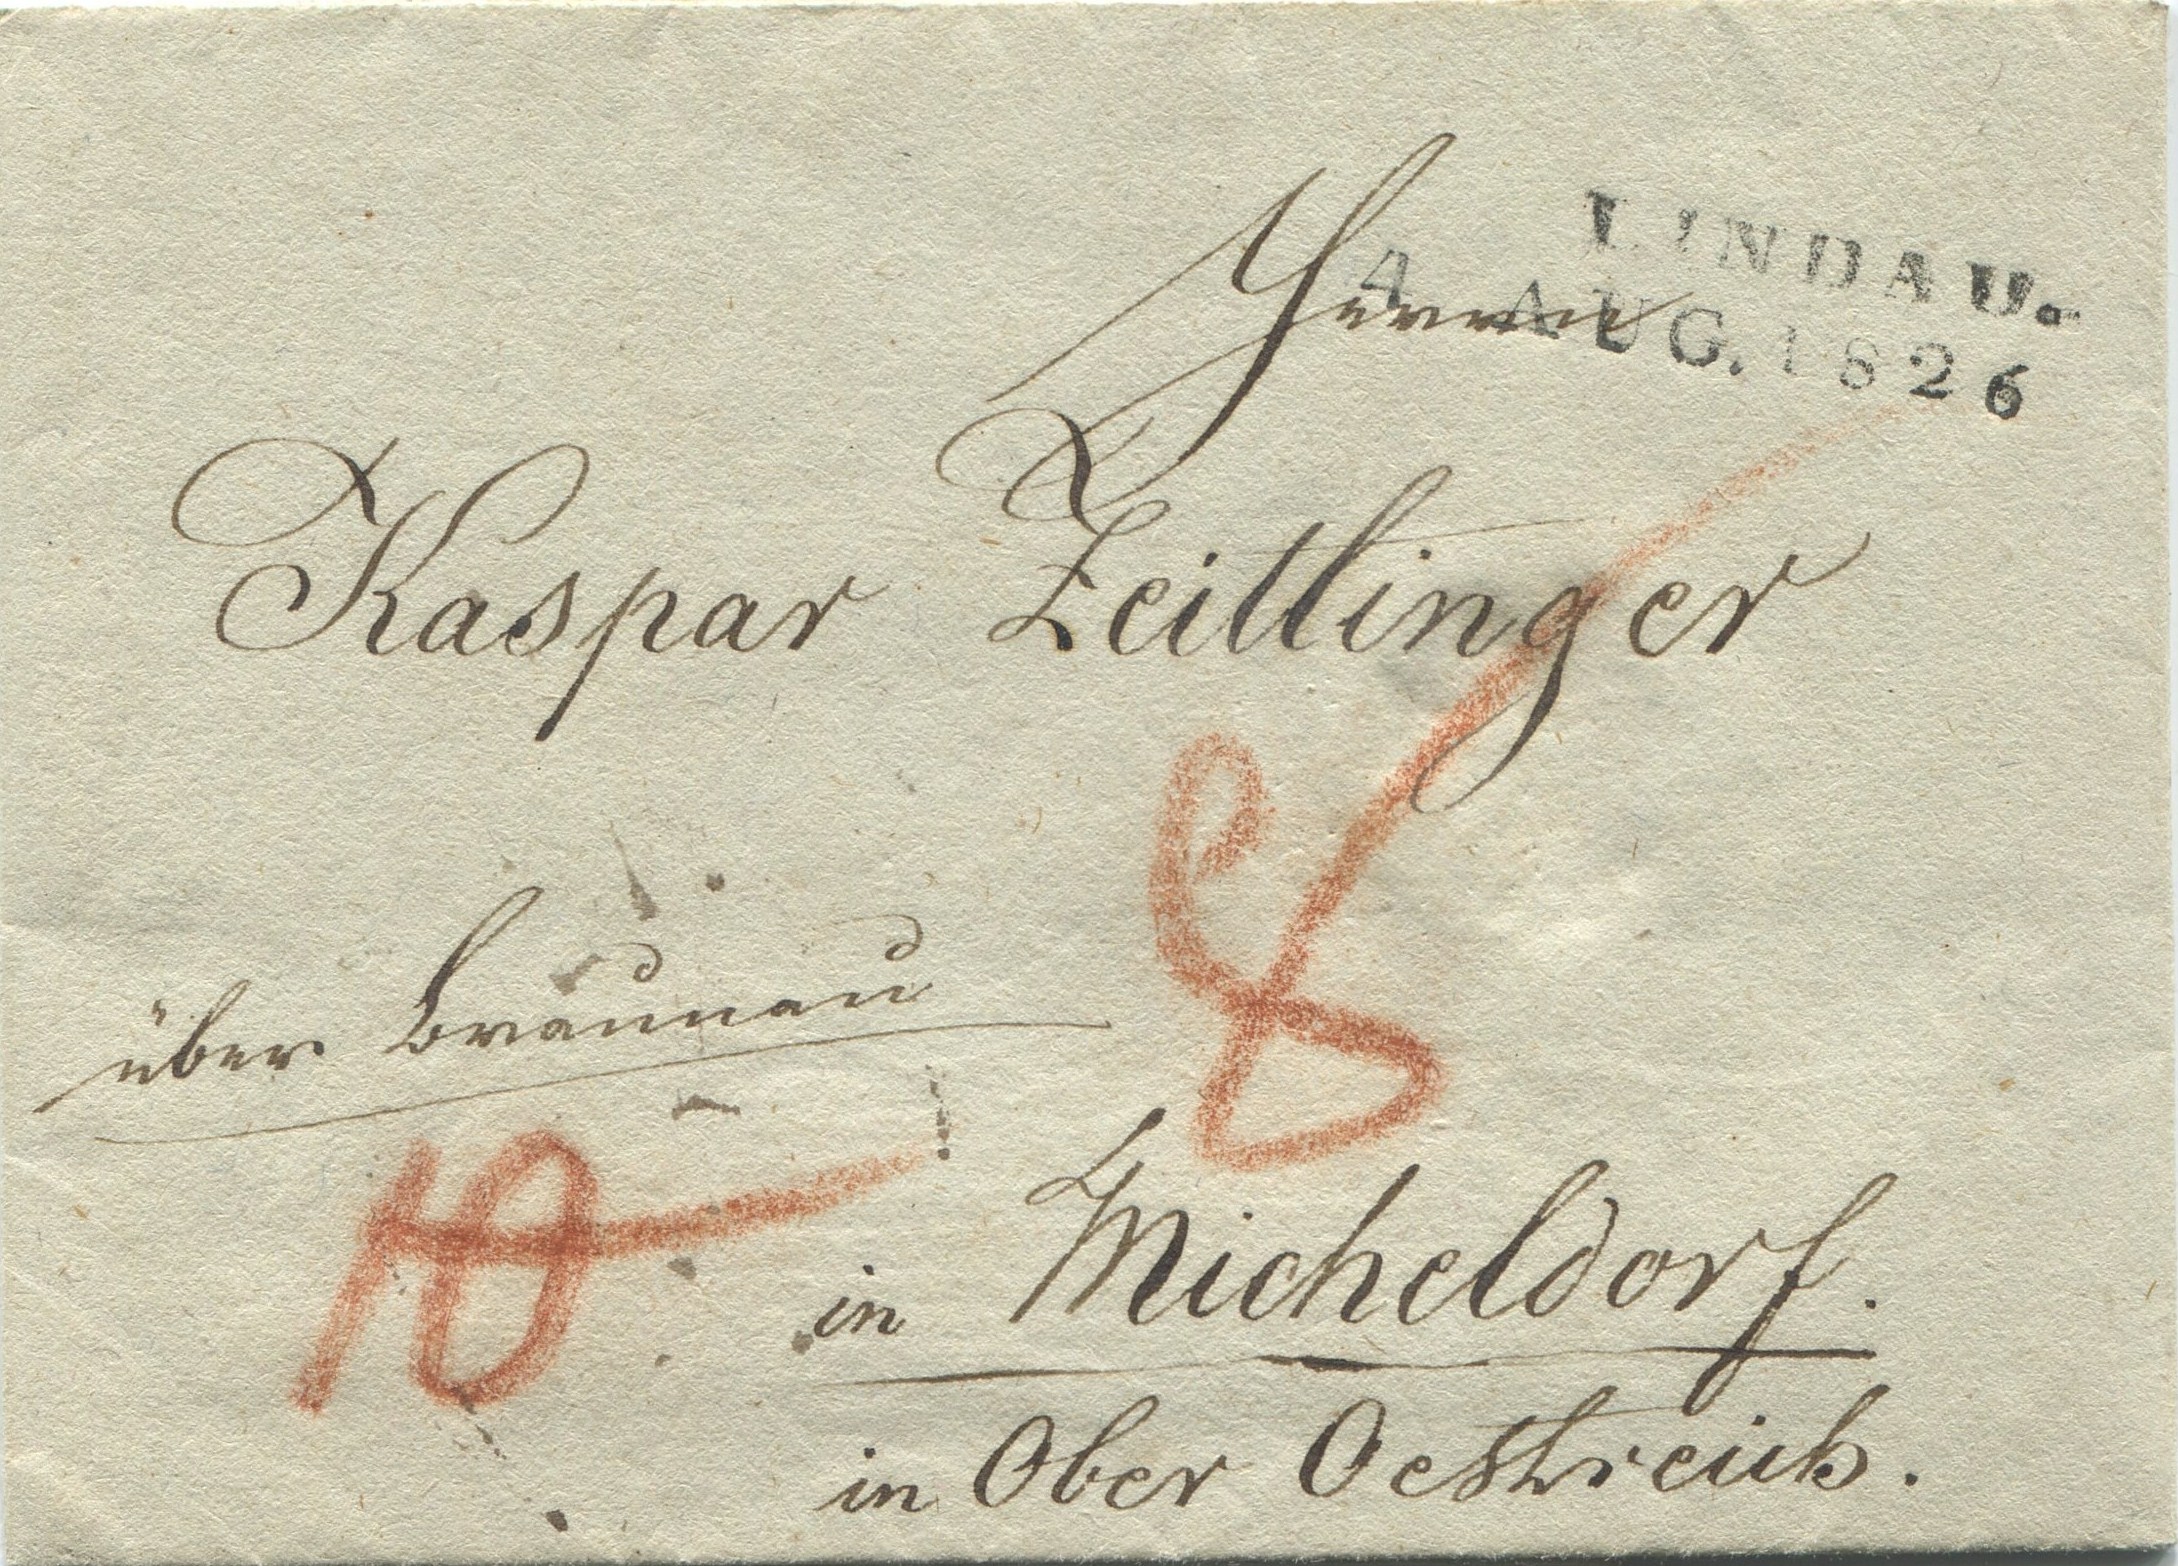 LINDAU.
4 AUG. 1826
Herrn
Kaspar Zeitlinger
8
über Braunau
10
in Micheldorf.
in Ober Oestreich.